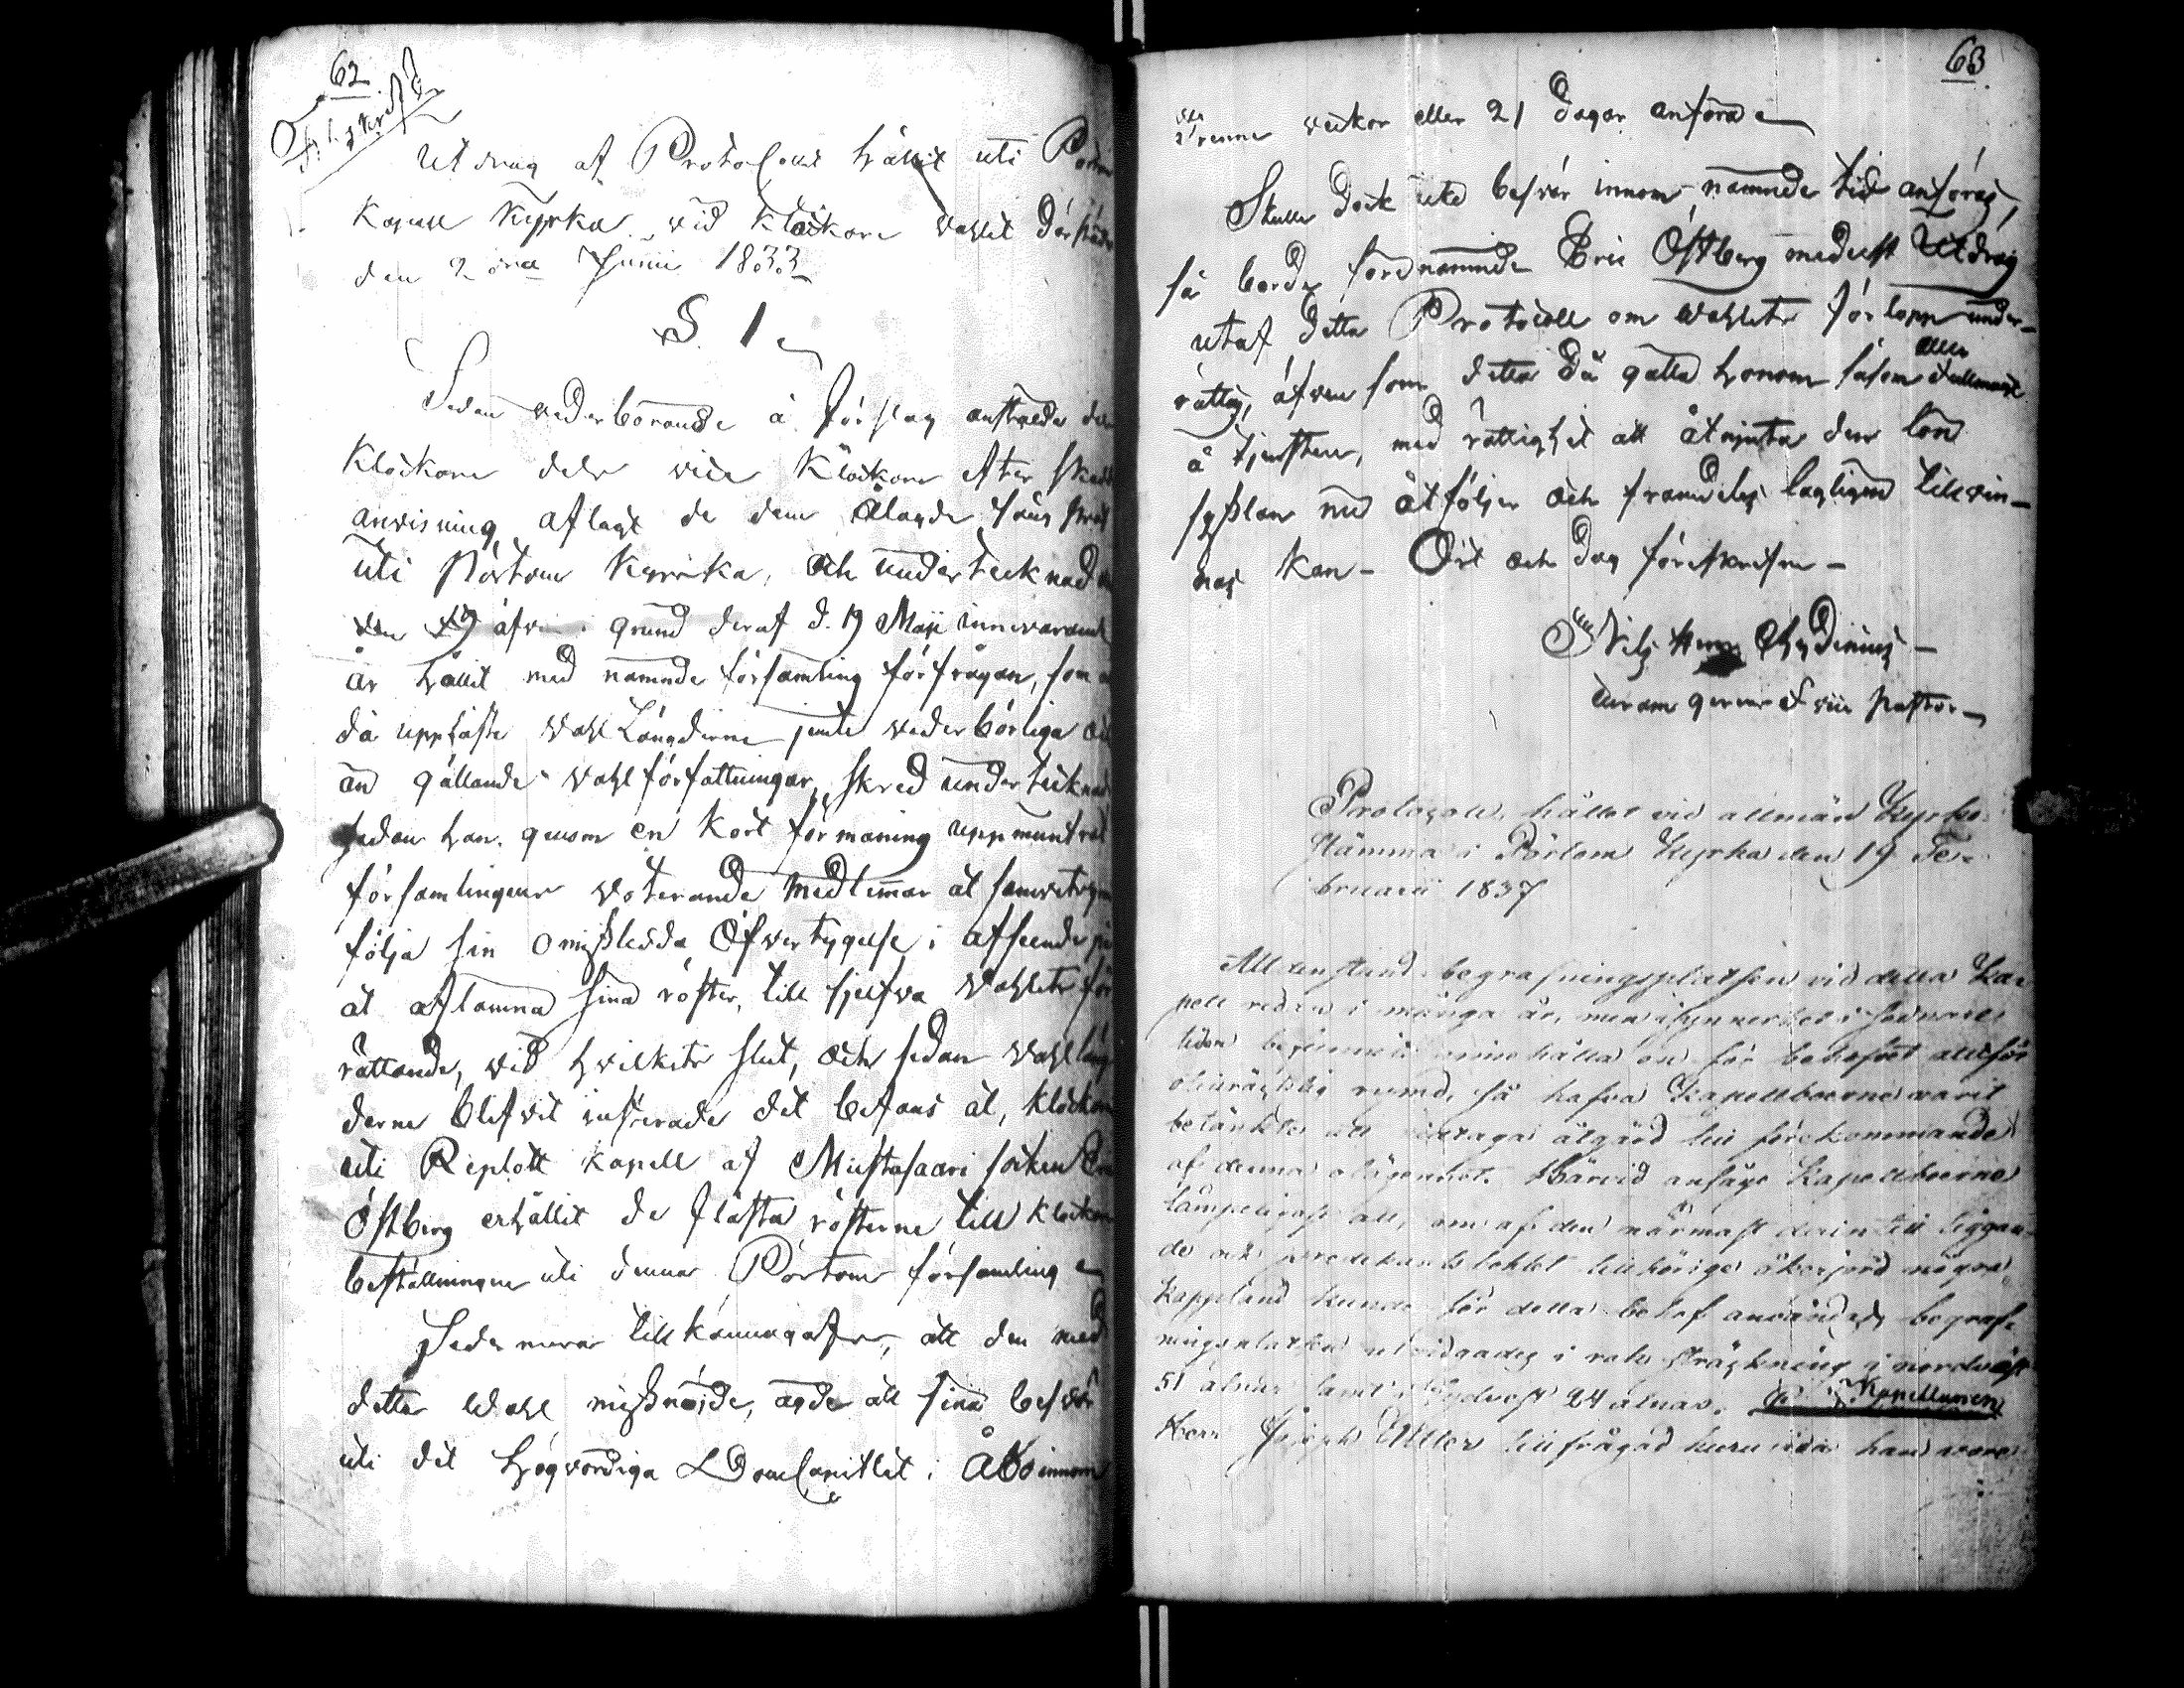 62
Afskrift
Utdrag af Protocoll hållit uti Pörtom
Kapell Kyrka vid Klockare Vahlet därstädes
den 2dra Junii 1833
S. 1
Sedan vederbörande å förslag anstälde
Klockare vice Klockare efter skedd
anvisning aflagt de dem ålagde sång prof
uti Pörtom Kyrka, och undertecknad
grund deraf d. 19 Maji innevarande
år hållit med nämnde församling förfrågan, som
då uppläste Vahl Längderne jemte vederbörliga
än gällande Vahlförfattningar, skred undertecknad
sedan han genom en kort förmaning uppmuntrat
församlingens Voterande Medlemmar at
följa sin omißledda Öfvertygelse i afseende på
at aflämna sina röster, till sjelfva Vahlets för
rättande, vid hvilkets slut, och sedan Vahl läng
derne blifvit justerade det befans at, Klockaren
uti Replott Kapell af Mustasaari socken Eric
Östberg erhållit de flästa rösterne till Klockare
beställningen uti denna Pörtom församling
Sedermera tillkännagafs, att den med
detta Wahl mißnöjde, ägde att sina besvär
uti det Högvördiga DomCapitlet i Åbo innom
63
trenne veckor eller 21 dagar anföra
Skulle dock icke besvär innom nämnde tid anföras,
så borde förenämnde Eric Östberg medelst Utdrag
utaf detta Protocoll om Wahlets förlopp under-
rättas, äfven som detta då gälla honom såsom
å tjensten, med rättighet att åtnjuta den lön
syßlan nu åtföljer och framdeles lagligen tillvin-
nas kan - Ort och dag föreskrifne -
Nils Herm Chydenius -
vice Pastor
Protocoll, hållet vid allmän Kyrko-
stämma i Pörtom Kyrka den 19 Fe-
bruarii 1837
Alldenstund begrafningsplatsen vid detta Ka-
pell redan i många år, men i synnerhet i sednare
tider begynnt innehålla en för behofvet alltför
otillräcklig rymd, så hafva Kapellboerne varit
betänkte att vidtaga åtgärd till förekommande
af denna olägenhet. Härvid ansågo Kapellboerne
lämpeligast att, om af den närmast derintill liggan-
de och predikants bohlet tillhörige åkerjord några
Kappland kunde för detta behof användas, begraf-
ningsplatsen utvidgades i rak sträckning i nordväst
51 alnar samt i sydvest 24 alnar. Kapellanen
Herr Joseph Utter tillfrågad huru vida han vore